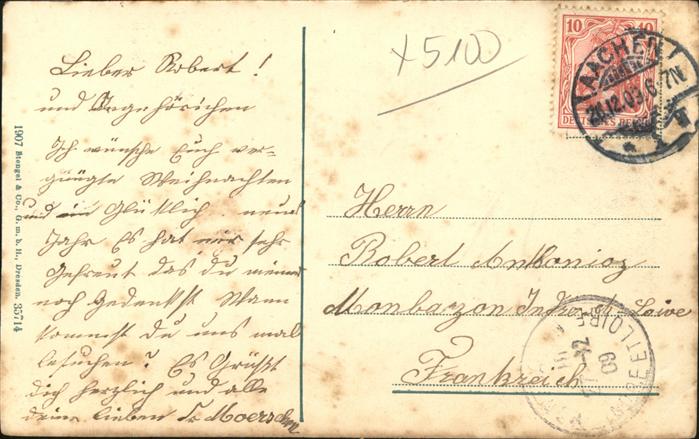 Lieber Robert!
und Angehörichen
Ich wünsche Euch ver-
güngte Weihnachten
und ein Glüklich neues
Jahr Es hat mir sehr
Gefreut das du meiner
noch Gedenkst Wann
kommst du uns mal
besuchen? Es Grüßt
dich herzlich und alle
deine lieben Fr Moersch
1907 Stengel & Co., G. m. b. H., Dresden. 35714
x 5100
10 10
DEUTSCHES REICH
AACHEN 1
20.12.09.6-7N.
Herrn
Robert Antonioz
Monbazon Indre & Loire
Frankreich
ET LOIRE
09